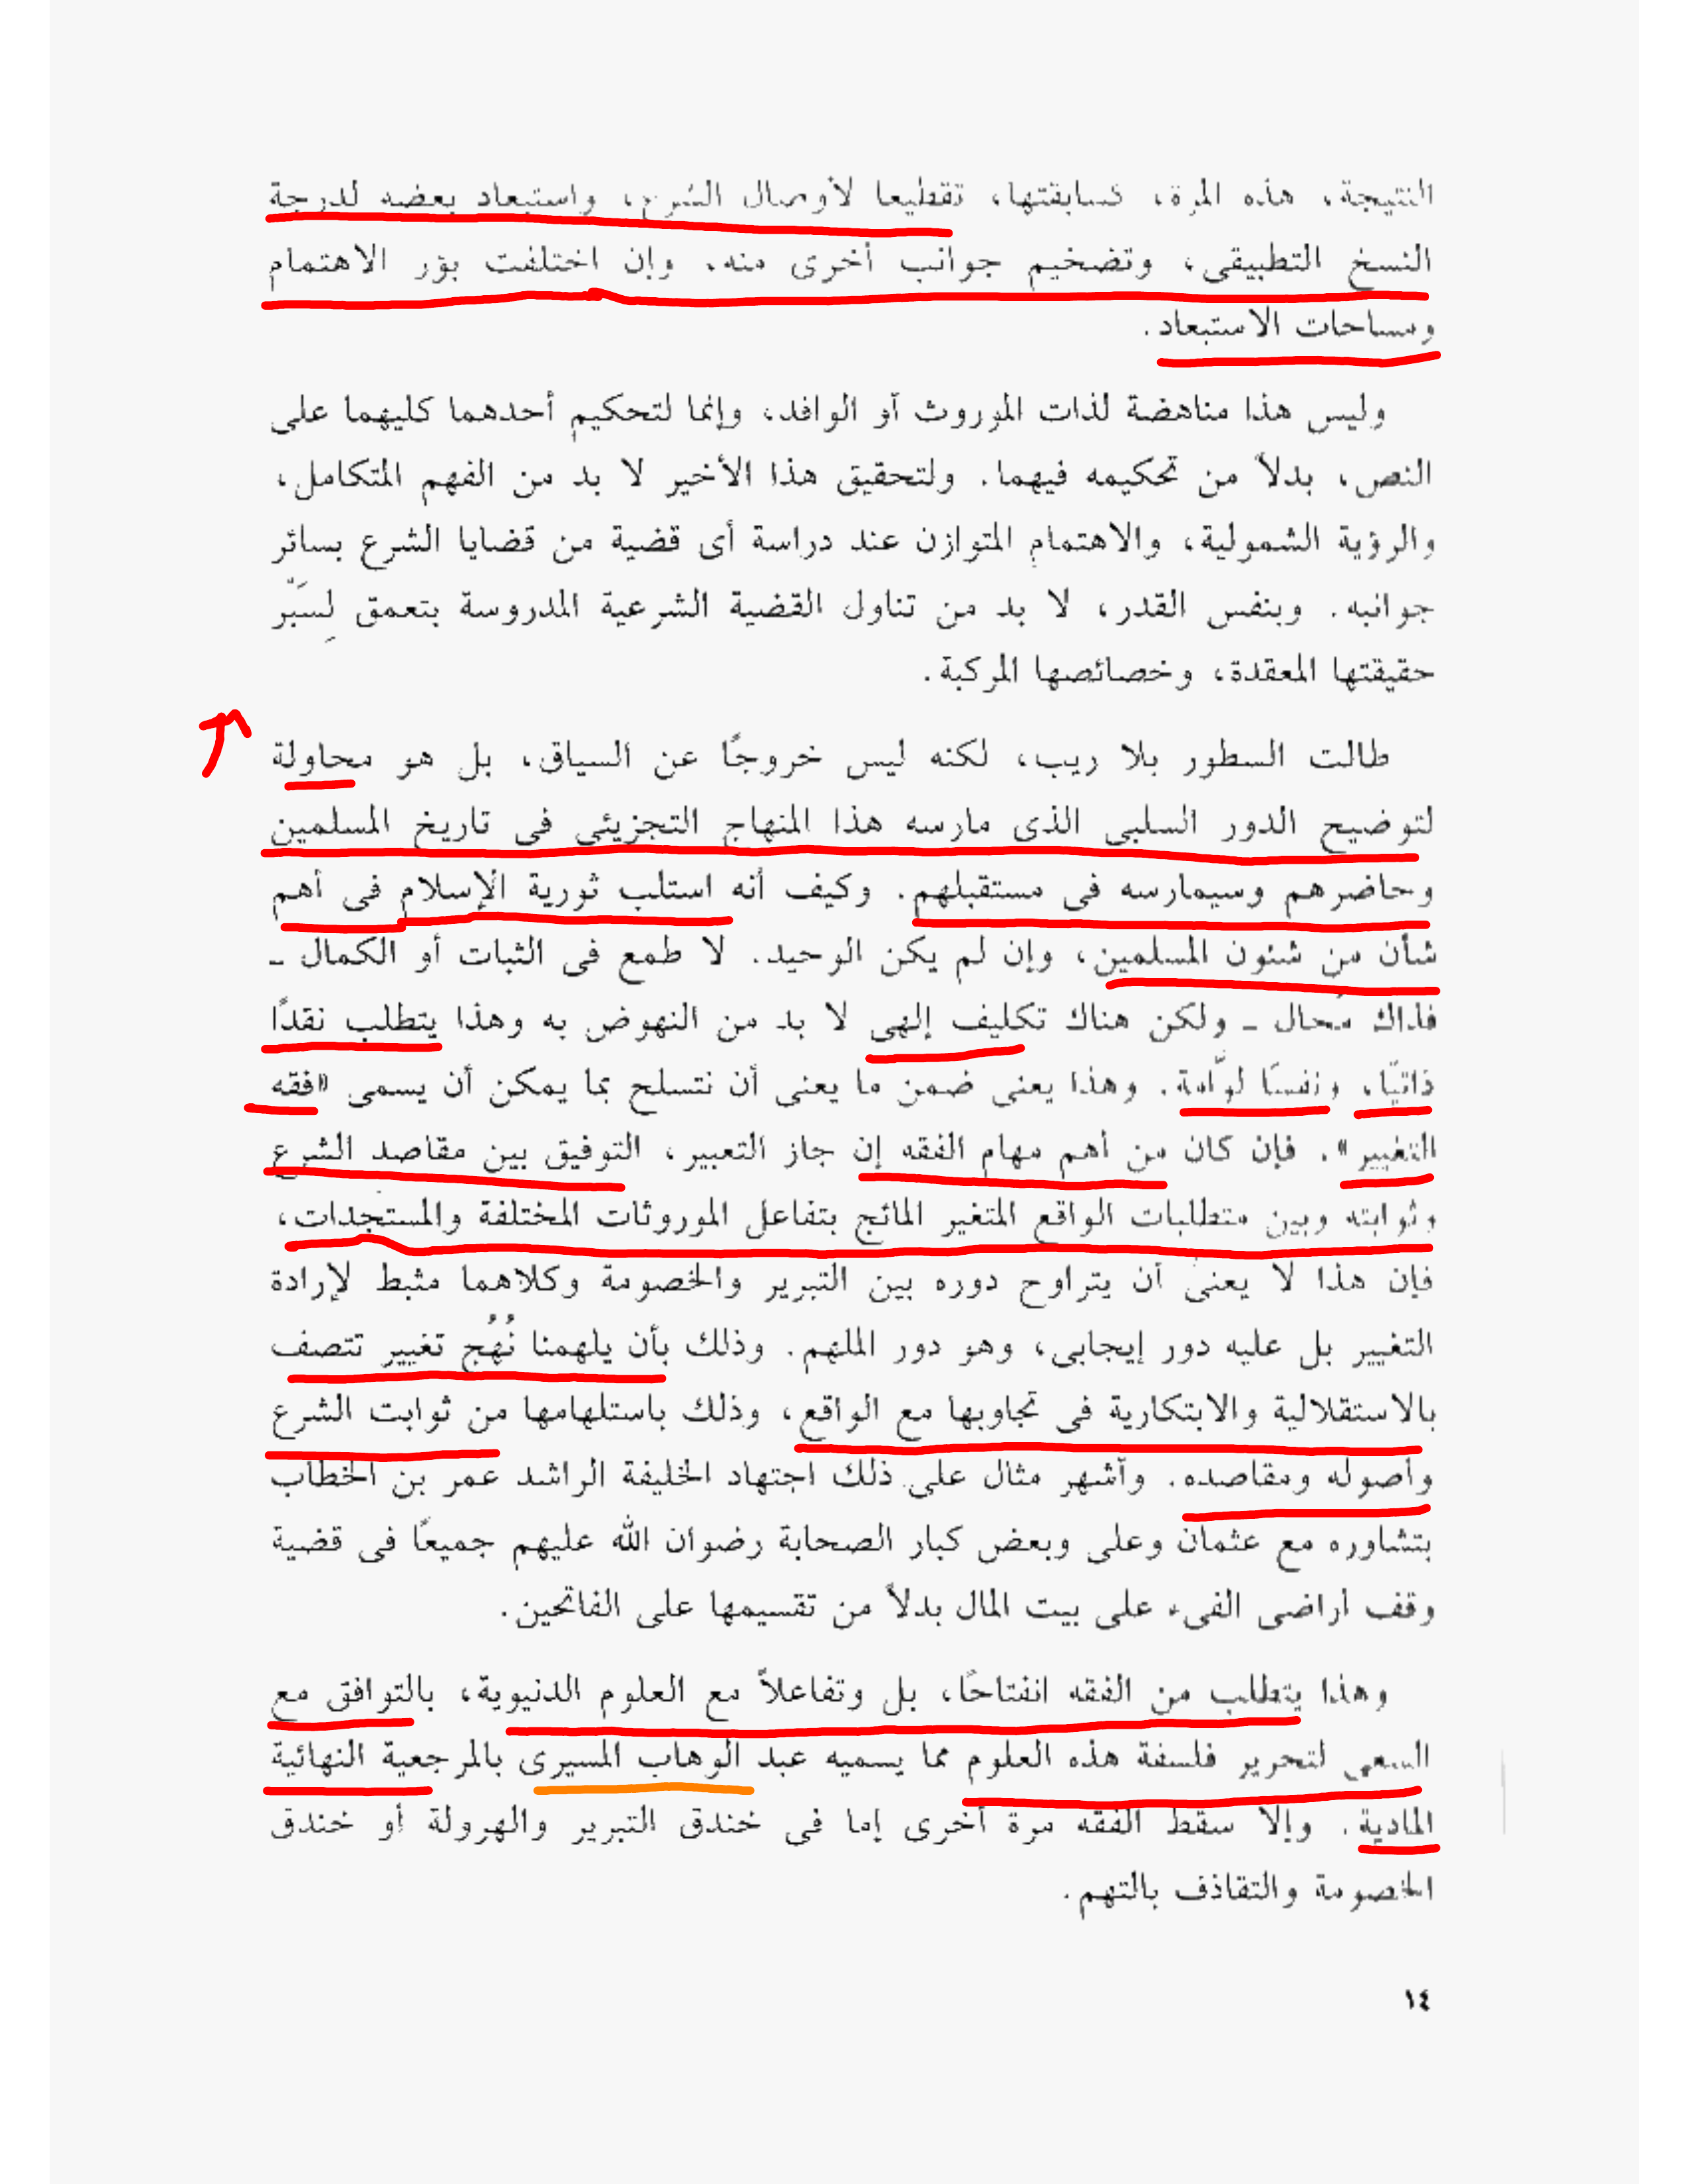 النتيجة، هذه المرة، كسابقتها، تقطيعا لأوصال الشرع، واستبعاد بعضه لدرجة
النسخ التطبيقى، وتضخيم جوانب أخرى منه. وإن اختلفت بؤر الاهتمام
ومساحات الاستبعاد.
وليس هذا مناهضة لذات الموروث أو الوافد، وإنما لتحكيم أحدهما كليهما على
النص، بدلاً من تحكيمه فيهما. ولتحقيق هذا الأخير لا بد من الفهم المتكامل،
والرؤية الشمولية، والاهتمام المتوازن عند دراسة أى قضية من قضايا الشرع بسائر
جوانبه. وبنفس القدر، لا بد من تناول القضية الشرعية المدروسة بتعمق لِسَبْر
حقيقتها المعقدة، وخصائصها المركبة.
طالت السطور بلا ريب، لكنه ليس خروجًا عن السياق، بل هو محاولة
لتوضيح الدور السلبى الذى مارسه هذا المنهاج التجزيئى فى تاريخ المسلمين
وحاضرهم وسيمارسه فى مستقبلهم. وكيف أنه استلب ثورية الإسلام فى أهم
شأن من شئون المسلمين، وإن لم يكن الوحيد. لا طمع فى الثبات أو الكمال ـ
فذاك مُحال ـ ولكن هناك تكليف إلهى لا بد من النهوض به وهذا يتطلب نقدًا
ذاتيًا، ونفسًا لوّامة. وهذا يعنى ضمن ما يعنى أن نتسلح بما يمكن أن يسمى «فقه
التغيير». فإن كان من أهم مهام الفقه إن جاز التعبير، التوفيق بين مقاصد الشرع
وثوابته وبين متطلبات الواقع المتغير المائج بتفاعل الموروثات المختلفة والمستجدات،
فإن هذا لا يعنى أن يتراوح دوره بين التبرير والخصومة وكلاهما مثبط لإرادة
التغيير بل عليه دور إيجابى، وهو دور الملهم. وذلك بأن يلهمنا نُهُج تغيير تتصف
بالاستقلالية والابتكارية فى تجاوبها مع الواقع، وذلك باستلهامها من ثوابت الشرع
وأصوله ومقاصده. وأشهر مثال على ذلك اجتهاد الخليفة الراشد عمر بن الخطاب
بتشاوره مع عثمان وعلى وبعض كبار الصحابة رضوان الله عليهم جميعًا فى قضية
وقف أراضى الفىء على بيت المال بدلاً من تقسيمها على الفاتحين.
وهذا يتطلب من الفقه انفتاحًا، بل وتفاعلاً مع العلوم الدنيوية، بالتوافق مع
السعى لتحرير فلسفة هذه العلوم مما يسميه عبد الوهاب المسيرى بالمرجعية النهائية
المادية. وإلا سقط الفقه مرة أخرى إما فى خندق التبرير والهرولة أو خندق
الخصومة والتقاذف بالتهم.
١٤